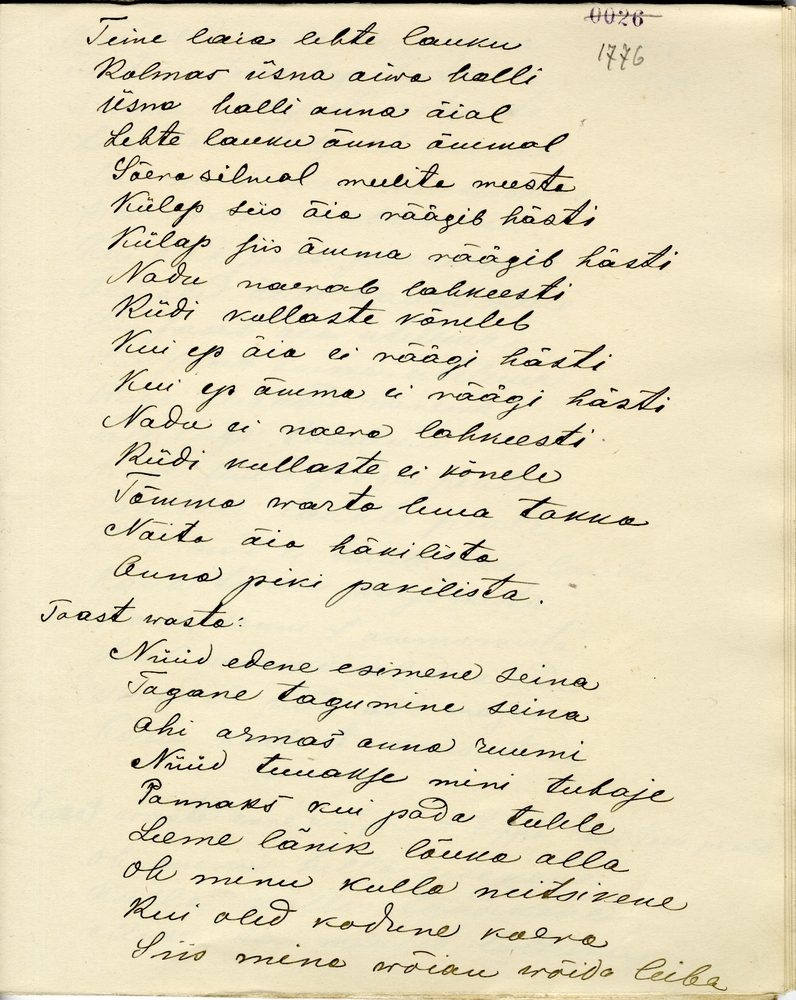 0026
1776
Teine laia lehte lauku
Kolmas üsna aiwa halli
Üsna halli anna äial
Lehte lauku änna ämmal
Sõera silmal meelita meesta
Külap siis äia räägib hästi
Külap siis ämma räägib hästi
Nadu naerab lahkeesti
Küdi kullaste kõneleb
Kui ep äia ei räägi hästi
Kui ep ämma ei räägi hästi
Nadu ei naera lahkeesti
Küdi kullaste ei kõnele
Tõmma warta luua takka
Näita äia häkilista
Anna piki pakilista.
Taast wasta:
Nüüd edene esimene seina
Tagane tagumine seina
Ahi armas anna ruumi
Nüüd tuuakse mini tubaje
Pannaks kui pada tulele
Leeme länik lõuka alla
Oh minu kulla neitsikene
Kui oled kodune kaera
Siis mina wõian wõida leiba